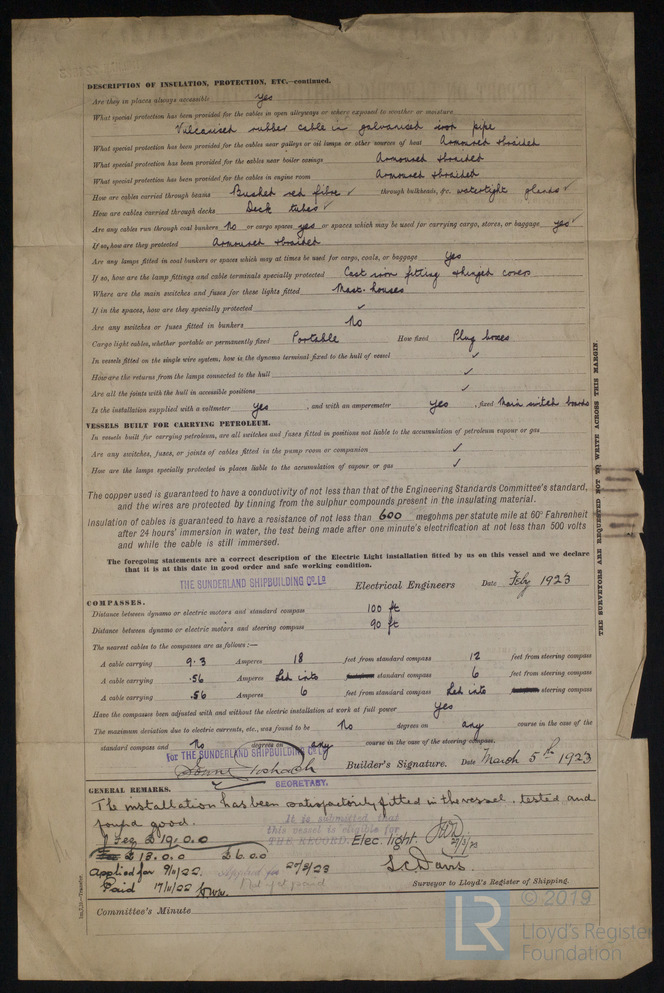 DESCRIPTION OF INSULATION, PROTECTION, ETC.—continued.
Are they in places always accessible yes
What special protection has been provided for the cables in open alleyways or where exposed to weather or moisture
Vulcanised rubber cable in galvanised iron pipe
What special protection has been provided for the cables near galleys or oil lamps or other sources of heat Armoured & braided
What special protection has been provided for the cables near boiler casings Armoured & braided
What special protection has been provided for the cables in engine room Armoured & braided
How are cables carried through beams Bushed red fibre ✓ through bulkheads, &c. watertight glands ✓
How are cables carried through decks Deck tubes ✓
Are any cables run through coal bunkers No or cargo spaces yes or spaces which may be used for carrying cargo, stores, or baggage yes ✓
If so, how are they protected Armoured & braided
Are any lamps fitted in coal bunkers or spaces which may at times be used for cargo, coals, or baggage yes
If so, how are the lamp fittings and cable terminals specially protected Cast iron fitting & hinged covers
Where are the main switches and fuses for these lights fitted Mast-houses
If in the spaces, how are they specially protected ✓
Are any switches or fuses fitted in bunkers No
Cargo light cables, whether portable or permanently fixed Portable How fixed Plug boxes
In vessels fitted on the single wire system, how is the dynamo terminal fixed to the hull of vessel ✓
How are the returns from the lamps connected to the hull ✓
Are all the joints with the hull in accessible positions ✓
Is the installation supplied with a voltmeter yes , and with an amperemeter yes , fixed Main switch boards
VESSELS BUILT FOR CARRYING PETROLEUM.
In vessels built for carrying petroleum, are all switches and fuses fitted in positions not liable to the accumulation of petroleum vapour or gas
Are any switches, fuses, or joints of cables fitted in the pump room or companion ✓
How are the lamps specially protected in places liable to the accumulation of vapour or gas ✓
The copper used is guaranteed to have a conductivity of not less than that of the Engineering Standards Committee's standard,
and the wires are protected by tinning from the sulphur compounds present in the insulating material.
Insulation of cables is guaranteed to have a resistance of not less than 600 megohms per statute mile at 60° Fahrenheit
after 24 hours' immersion in water, the test being made after one minute's electrification at not less than 500 volts
and while the cable is still immersed.
The foregoing statements are a correct description of the Electric Light installation fitted by us on this vessel and we declare
that it is at this date in good order and safe working condition.
THE SUNDERLAND SHIPBUILDING CO. LD. Electrical Engineers Date Feby 1923
COMPASSES.
Distance between dynamo or electric motors and standard compass 100 ft
Distance between dynamo or electric motors and steering compass 90 ft
The nearest cables to the compasses are as follows:—
A cable carrying 9.3 Amperes 18 feet from standard compass 12 feet from steering compass
A cable carrying .56 Amperes Led into standard compass 6 feet from steering compass
A cable carrying .56 Amperes 6 feet from standard compass Led into steering compass
Have the compasses been adjusted with and without the electric installation at work at full power yes
The maximum deviation due to electric currents, etc., was found to be No degrees on any course in the case of the
standard compass and No degrees on any course in the case of the steering compass.
For THE SUNDERLAND SHIPBUILDING CO. LD.
Builder's Signature. Date March 5th 1923
SECRETARY.
GENERAL REMARKS.
The installation has been satisfactorily fitted in the vessel, tested and
found good.
It is submitted that
this vessel is eligible for
THE RECORD. Elec. light.
Fee £19.0.0
£13.0.0 £6.0.0
Applied for 9/11/22. Applied for 20/3/23
Paid 17/11/22 Not yet paid
S.C. Davis.
Surveyor to Lloyd's Register of Shipping.
Committee's Minute
THE SURVEYORS ARE REQUESTED NOT TO WRITE ACROSS THIS MARGIN.
LR
© 2019
Lloyd's Register
Foundation